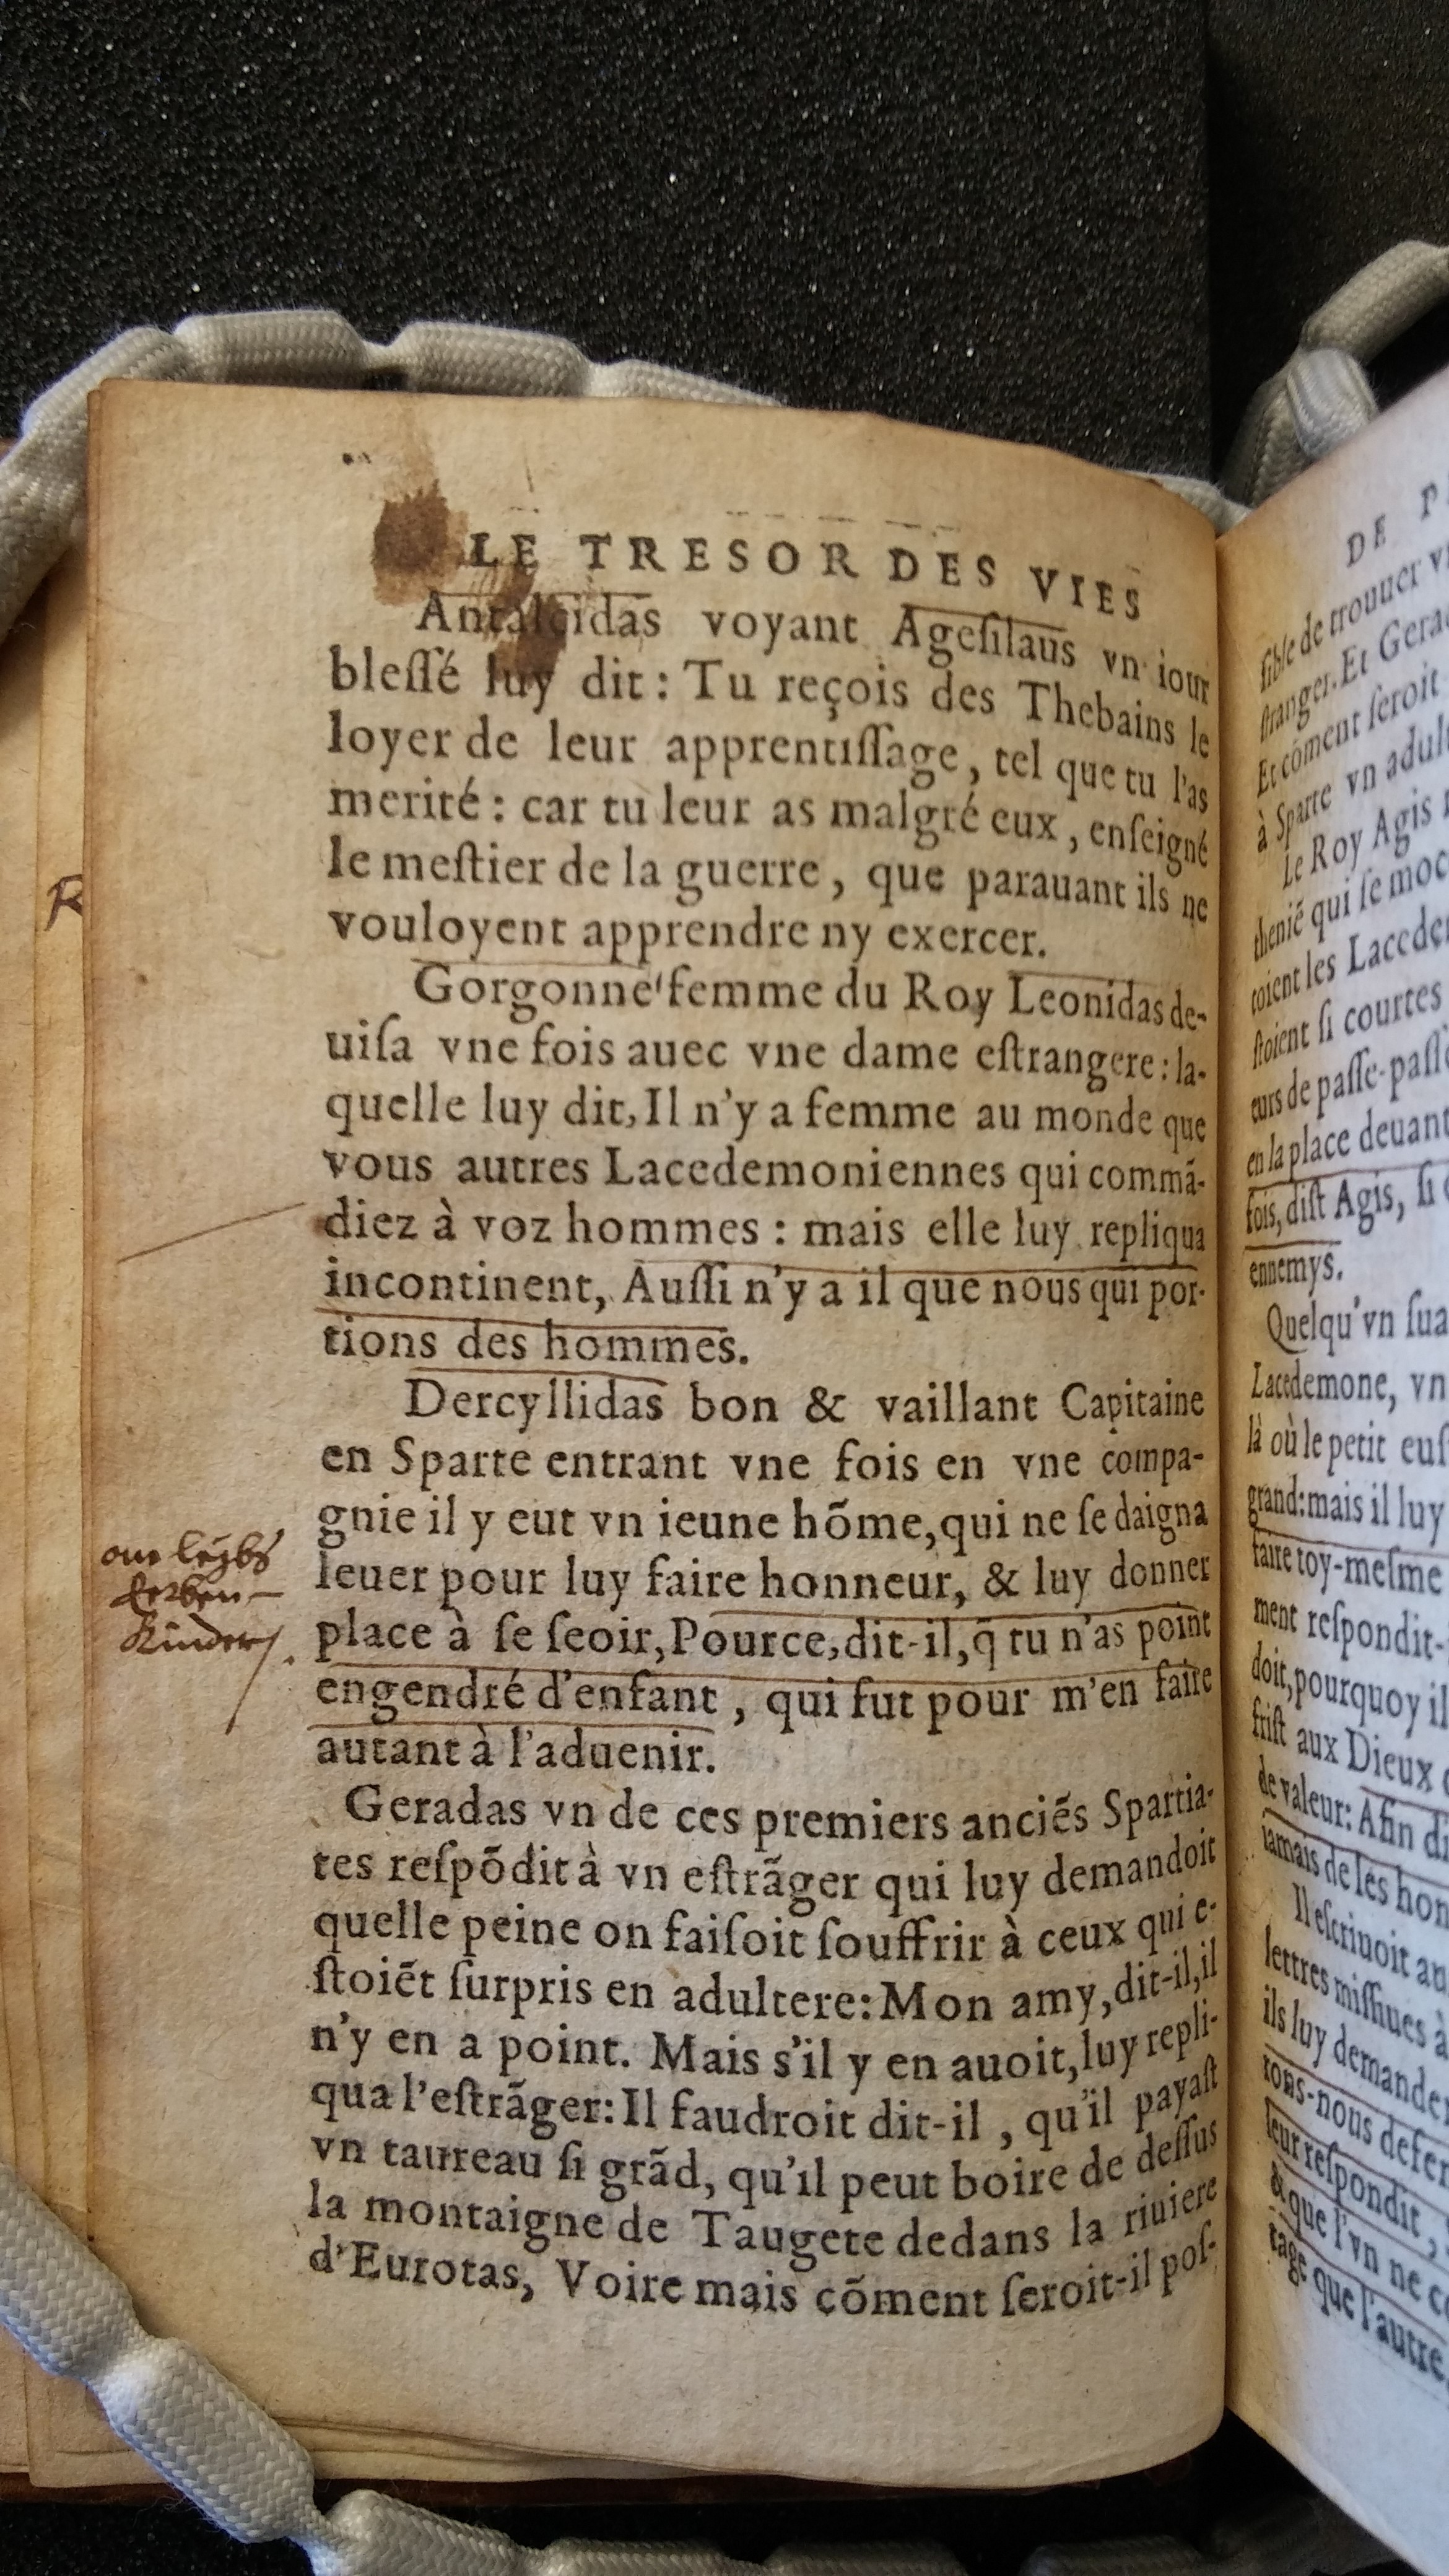 LE TRESOR DES VIES
Antalcidas voyant Ageſilaus vn iour
bleſſé luy dit : Tu reçois des Thebains le
loyer de leur apprentiſſage, tel que tu l'as
merité : car tu leur as malgré eux, enſeigné
le meſtier de la guerre, que parauant ils ne
vouloyent apprendre ny exercer.
Gorgonne femme du Roy Leonidas de-
uiſa vne fois auec vne dame eſtrangere : la-
quelle luy dit, Il n'y a femme au monde que
vous autres Lacedemoniennes qui commã-
diez à voz hommes : mais elle luy repliqua
incontinent, Auſſi n'y a il que nous qui por-
tions des hommes.
Dercyllidas bon & vaillant Capitaine
en Sparte entrant vne fois en vne compa-
gnie il y eut vn ieune hõme, qui ne ſe daigna
leuer pour luy faire honneur, & luy donner
place à ſe ſeoir, Pource, dit-il, q̃ tu n'as point
engendré d'enfant, qui fut pour m'en faire
autant à l'aduenir.
Geradas vn de ces premiers anciẽs Spartia-
tes reſpõdit à vn eſtrãger qui luy demandoit
quelle peine on faiſoit ſouffrir à ceux qui e-
ſtoiẽt ſurpris en adultere: Mon amy, dit-il, il
n'y en a point. Mais s'il y en auoit, luy repli-
qua l'eſtrãger: Il faudroit dit-il, qu'il payaſt
vn taureau ſi grãd, qu'il peut boire de deſſus
la montaigne de Taugete dedans la riuiere
d'Eurotas, Voire mais cõment ſeroit-il poſ-
leybs
erben
Kinder
R
DE
ſible de trouuer
ſtranger. Et
Et cõment ſeroit
à Sparte vn
Le Roy Agis
theniẽ qui ſe
toient les
ſtoient ſi courtes
eurs de paſſe-
en la place deuant
fois, diſt Agis, ſi
ennemys.
Quelqu'vn
Lacedemone, vn
là où le petit
grand: mais il luy
faire toy-meſme
ment reſpondit-
doit, pourquoy il
friſt aux Dieux
de valeur: Afin
iamais de les
Il eſcriuoit
lettres miſſiues à
ils luy
rons-nous
leur reſpondit,
& que l'vn ne
tage que l'autre